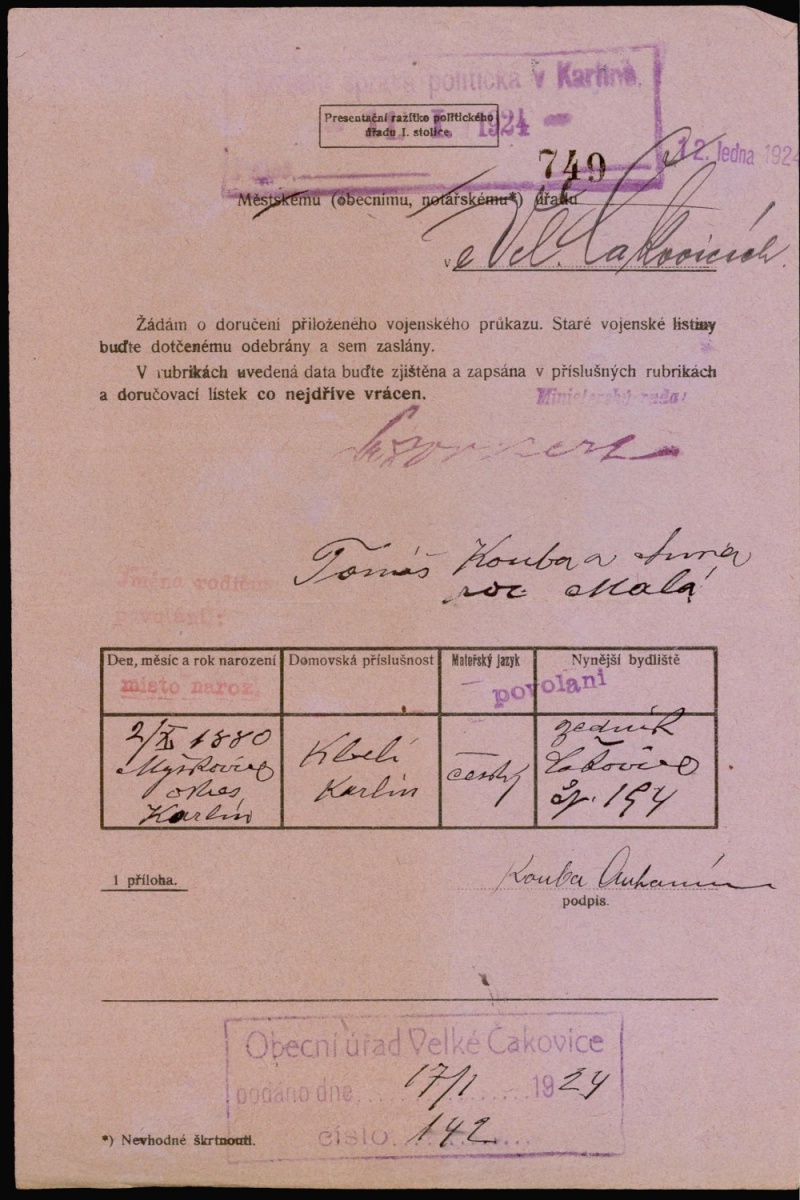 správa politická v Karlíně,
Presentační razítko politického
úřadu I. stolice.
1924
749
12. ledna 1924
Městskému (obecnímu, notářskému*) úřadu
v e Vel. Čakovicích.
Žádám o doručení přiloženého vojenského průkazu. Staré vojenské listiny
buďte dotčenému odebrány a sem zaslány.
V rubrikách uvedená data buďte zjištěna a zapsána v příslušných rubrikách
a doručovací lístek co nejdříve vrácen.
Ministerský rada:
Tomáš Kouba a Anna
roz. Malá
Jména rodičů
povolání:
Den, měsíc a rok narození
Domovská příslušnost
Mateřský jazyk
Nynější bydliště
místo naroz.
povolani
2/X 1880
Myškovice
okres
Karlín
Kbelí
Karlín
český
zedník
čp. 194
1 příloha.
Kouba Antonín
podpis.
Obecní úřad Velké Čakovice
podáno dne 17/1 1924
číslo 142
*) Nevhodné škrtnouti.